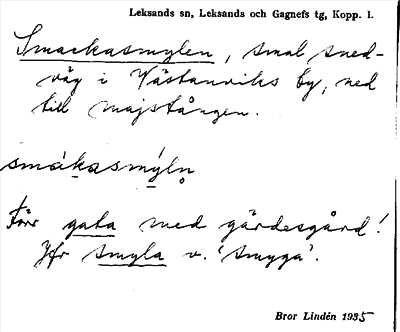 Leksands sn, Leksands och Gagnefs tg, Kopp. l.
Smackasmylen, smal sned-
väg i Västanviks by, ned
till majstången.
smákasmýln̥
Förr gata med gärdesgård!
Jfr smyla v. 'smyga'.
Bror Lindén 1935